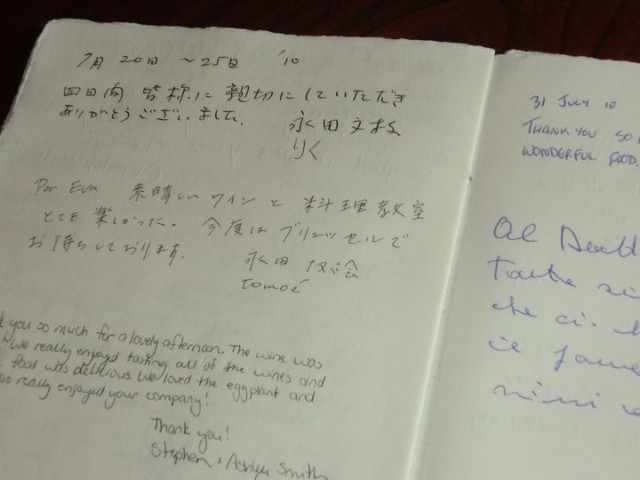 7月 20日 〜25日 '10
四日間 皆様に 親切にしていただき
ありがとうございました。
永田 文枝
りく
Por Eva 素晴しいワイン と 料理教室
とても 楽しかった。 今度は ブリュッセルで
お待ちしております。
永田 友会
Tomoé
you so much for a lovely afternoon. The wine was
we really enjoyed tasting all of the wines and
food was delicious we loved the eggplant and
really enjoyed your company!
Thank you!
Stephen, Ashlyn Smith
31 July 10
THANK YOU SO
WONDERFUL FOOD,
Al
Tante
che ci